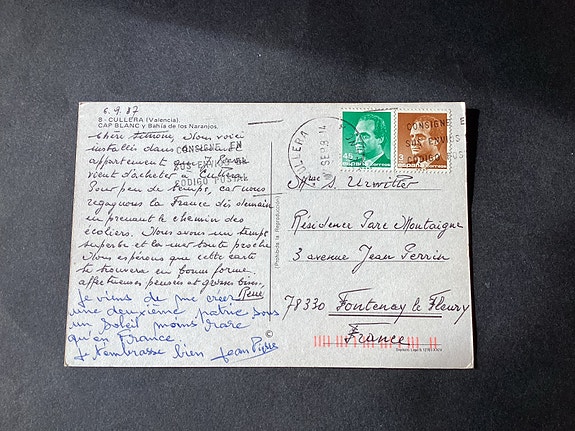 6.9.87
8 - CULLERA (Valencia).
CAP BLANC y Bahía de los Naranjos.
Chère Simone, Nous voici
installés dans cet
appartement que J. Pierre
vient d'acheter à Cullera
Pour peu de temps, car nous
regagnons la France dès demain
en prenant le chemin des
écoliers. Nous avons un temps
superbe et la mer toute proche
Nous espérons que cette carte
te trouvera en bonne forme.
affectueuses pensées et grosses bises.
René
Je viens de me créer
une deuxième patrie sous
un soleil moins rare
qu'en France.
Je t'embrasse bien Jean Pierre
(Prohibida la Reproducción)
©
CONSIGNE EN
SUS ENVIOS EL
CODIGO POSTAL
CULLERA
SEP 8 14
45
españa correos
3
españa
CONSIGNE E
SUS ENVIOS
CODIGO POSTA
Mme S. Urwitter
Résidence Parc Montaigne
3 avenue Jean Perrin
78330 Fontenay le Fleury
France